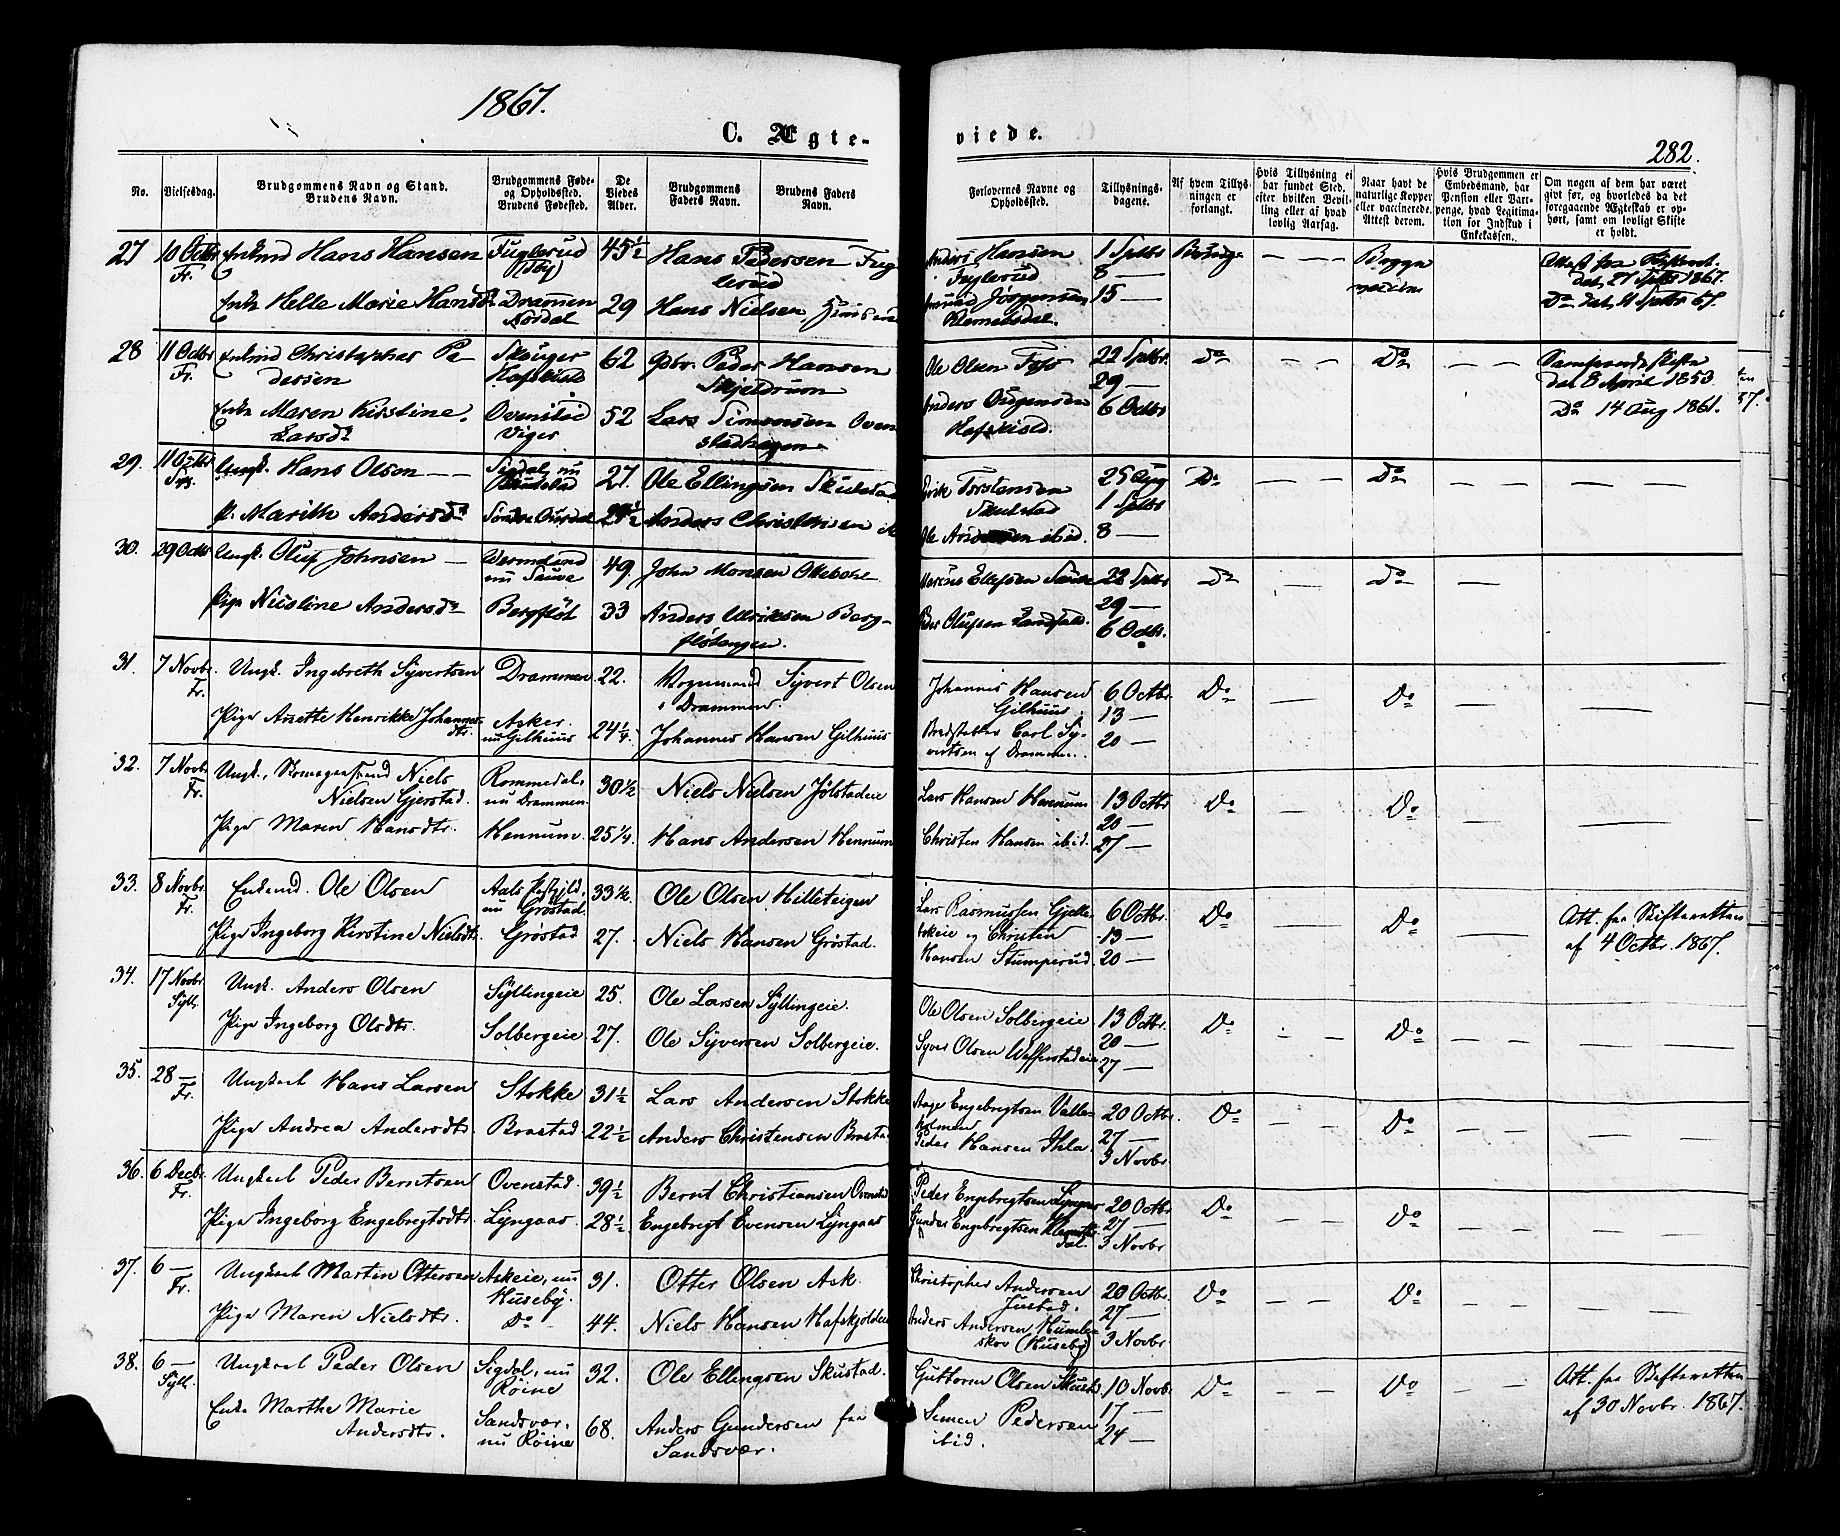 1867.
C. Ægte-
viede.
282.
No.
Vielsesdag.
Brudgommens Navn og Stand.
Brudens Navn.
Brudgommens Føde-
og Opholdssted.
Brudens Fødested.
De
Viedes
Alder.
Brudgommens
Faders Navn.
Brudens Faders
Navn.
Forlovernes Navne og
Opholdssted.
Tillysnings-
dagene.
Af hvem Tillys-
ningen er
forlangt.
Hvis Tillysning ei
har fundet Sted,
efter hvilken Bevil-
ling eller af hvad
lovlig Aarsag.
Naar havt de
naturlige Kopper
eller vaccinerede.
Attest derom.
Hvis Brudgommen er
Embedsmand, har
Pension eller Vart-
penge, hvad Legitima-
tion for Indskud i
Enkekassen.
Om nogen af dem har været
givt før, og hvorledes da det
foregaaende Ægteskab er op-
hørt, samt om lovligt Skifte
er holdt.
27 10 Octbr Fr. Enkmd Hans Hansen Fuglerud 45½ Hans Pedersen Fug
lerud
Enke Helle Marie Hansd. Drammen 29 Hans Nielsen
Anders Hansen 1 Sptbr
Fuglerud 8 —
Jørgensen 15 —
dat. 27 Sptbr 1867.
Do dat. 11 Sptbr 67.
28 11 Octbr Fr. Enkmd Christopher Pe-
dersen Skouger 62 Peder Hansen
Enke Maren Kirstine
Larsd. Ovenstad
Viger 52 Lars Simensen Oven
stadhagen
Ole Olsen 22 Sptbr. Do — — Do — —
29 —
Anders 6 Octbr
Hafskiold.
dat 8 April 1853.
Do 14 Aug 1861.
29. 11 Octbr Ungk. Hans Olsen — — Sigdal, nu
27. Ole Ellingsen Skustad
P. Marith Andersd. Anders Christensen
Torstensen 25 Aug Do — — — Do — —
Skustad 1 Sptbr
Ole ibid. 8 —
30. 29 Octbr Ungk. Oluf Johnsen — Wermland
nu 49. John Monsen
Pige Nicoline Andersd. Bergfløt 33 Anders Ulriksen Berg-
fløtangen.
Marcus Ellefsen 22 Sptbr Do — — Do —
29 —
Peder Olufsen 6 Octbr.
31. 7 Novbr. Fr. Ungk. Ingebreth Syvertsen Drammen 22. Sivert Olsen
i Drammen.
Pige Anette Henrikke Johannes-
dtr. Asker.
nu Gilhuus 24¼. Johannes Hansen Gilhuus
Johannes Hansen 6 Octbr. Do — — Do — —
Gilhuus 13 —
Carl Sy- 20 —
vertsen af Drammen.
32. 7 Novbr. Fr. Ungk., Niels
Nielsen Gjerstad. Rommedal,
nu Drammen. 30½ Niels Nielsen Jølstadeie
Pige Maren Hansdtr. Hennum. 25¼. Hans Andersen Hennum
Lars Hansen Hennum 13 Octbr Do — — Do — —
20 —
Christen Hansen ibid. 27 —
33. 8 Novbr. Fr. Enkemd. Ole Olsen Aals Prstgjld,
nu Grøstad. 33½. Ole Olsen Hilleteigen
Pige Ingeborg Kirstine Nielsdtr. Grøstad 27. Niels Hansen Grøstad.
Lars Rasmussen 6 Octbr. Do — — Do — —
og Christen 13 —
Hansen Stumperud 20 —
Att. fra Skifteretten
af 4 Octbr. 1867.
34. 17 Novbr. Syll. Ungk. Anders Olsen Syllingeie 25. Ole Larsen Syllingeie.
Pige Ingeborg Olsdtr. Solbergeie 27. Ole Syversen Solbergeie.
Ole Olsen Solbergeie 13 Octbr. Do — — Do — —
20 —
Syver Olsen 27 —
35. 28 — Fr. Ungkarl Hans Larsen Stokke 31½ Lars Andersen Stokke
Pige Andrea Andersdtr. Brastad 22½ Anders Christensen Brastad
Aage Engebrigtsen Valle- 20 Octbr. Do — — Do — —
holmen 27 —
Peder Hansen Ihla. 3 Novbr
36. 6 Decbr. Fr. Ungkarl Peder Berntsen Ovenstad. 39½ Bernt Christiansen Ovenstad
Pige Ingeborg Engebregtsdtr. Lyngaas. 28½ Engebrigt Evensen Lyngaas
Peder Engebregtsen Lyngaas 20 Octbr Do — — Do — —
Gunder Engebregtsen 27 —
dal. 3 Novbr
37. 6 — Fr. Ungkarl Martin Ottersen Askeie, nu
Huseby. 31. Otter Olsen Ask.
Pige Maren Nielsdtr. Do — 44. Niels Hansen Hafskjolden
Christopher Andersen 20 Octbr. Do — — Do — —
Justad. 27 —
Anders Andersen Humle- 3 Novbr
skov (Huseby)
38. 6 — Syll. Ungkarl Peder Olsen Sigdal, nu
Röine 32. Ole Ellingsen Skustad.
Enke Marthe Marie
Andersdtr. Sandsvær,
nu Röine 68. Anders Gundersen fra
Sandsvær.
Guttorm Olsen 10 Novbr. Do — — Do — —
Simen Pedersen 17 —
ibid. 24 —
Att. fra Skifteretten
af 30 Novbr. 1867.